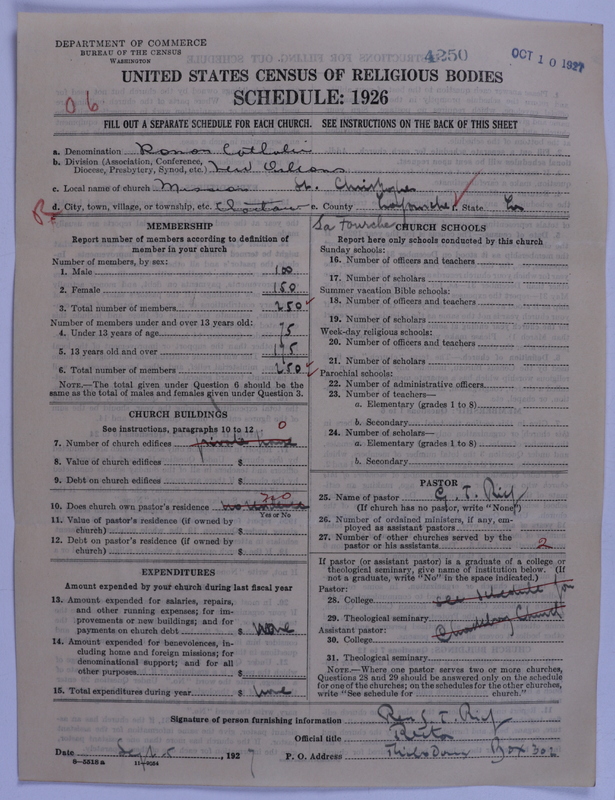 DEPARTMENT OF COMMERCE
BUREAU OF THE CENSUS
WASHINGTON
4250
OCT 10 1927
UNITED STATES CENSUS OF RELIGIOUS BODIES
SCHEDULE: 1926
06
FILL OUT A SEPARATE SCHEDULE FOR EACH CHURCH. SEE INSTRUCTIONS ON THE BACK OF THIS SHEET
a. Denomination Roman Catholic
b. Division (Association, Conference, Diocese, Presbytery, Synod, etc.) New Orleans
c. Local name of church Mission St.
d. City, town, village, or township, etc. e. County Lafourche f. State La
La Fourche
MEMBERSHIP
Report number of members according to definition of member in your church
Number of members, by sex:
1. Male 100
2. Female 150
3. Total number of members 250
Number of members under and over 13 years old:
4. Under 13 years of age 75
5. 13 years old and over 175
6. Total number of members 250
NOTE.—The total given under Question 6 should be the same as the total of males and females given under Question 3.
CHURCH BUILDINGS
See instructions, paragraphs 10 to 12
7. Number of church edifices private home 0
8. Value of church edifices $
9. Debt on church edifices $
10. Does church own pastor's residence no
Yes or No
11. Value of pastor's residence (if owned by church) $
12. Debt on pastor's residence (if owned by church) $
EXPENDITURES
Amount expended by your church during last fiscal year
13. Amount expended for salaries, repairs, and other running expenses; for improvements or new buildings; and for payments on church debt $ none
14. Amount expended for benevolences, including home and foreign missions; for denominational support; and for all other purposes $
15. Total expenditures during year $ none
CHURCH SCHOOLS
Report here only schools conducted by this church
Sunday schools:
16. Number of officers and teachers
17. Number of scholars
Summer vacation Bible schools:
18. Number of officers and teachers
19. Number of scholars
Week-day religious schools:
20. Number of officers and teachers
21. Number of scholars
Parochial schools:
22. Number of administrative officers
23. Number of teachers—
a. Elementary (grades 1 to 8)
b. Secondary
24. Number of scholars—
a. Elementary (grades 1 to 8)
b. Secondary
PASTOR
25. Name of pastor
(If church has no pastor, write "None")
26. Number of ordained ministers, if any, employed as assistant pastors
27. Number of other churches served by the pastor or his assistants 2
If pastor (or assistant pastor) is a graduate of a college or theological seminary, give name of institution below. (If not a graduate, write "No" in the space indicated.)
Pastor:
28. College see schedule for
29. Theological seminary
Assistant pastor:
30. College Church
31. Theological seminary
NOTE.—Where one pastor serves two or more churches, Questions 28 and 29 should be answered only on the schedule for one of the churches; on the schedules for the other churches, write "See schedule for church."
Signature of person furnishing information Rev.
Official title Rector
Date Sept 5, 1927 P. O. Address Thibodaux Box 302
8—5518a 11—9024